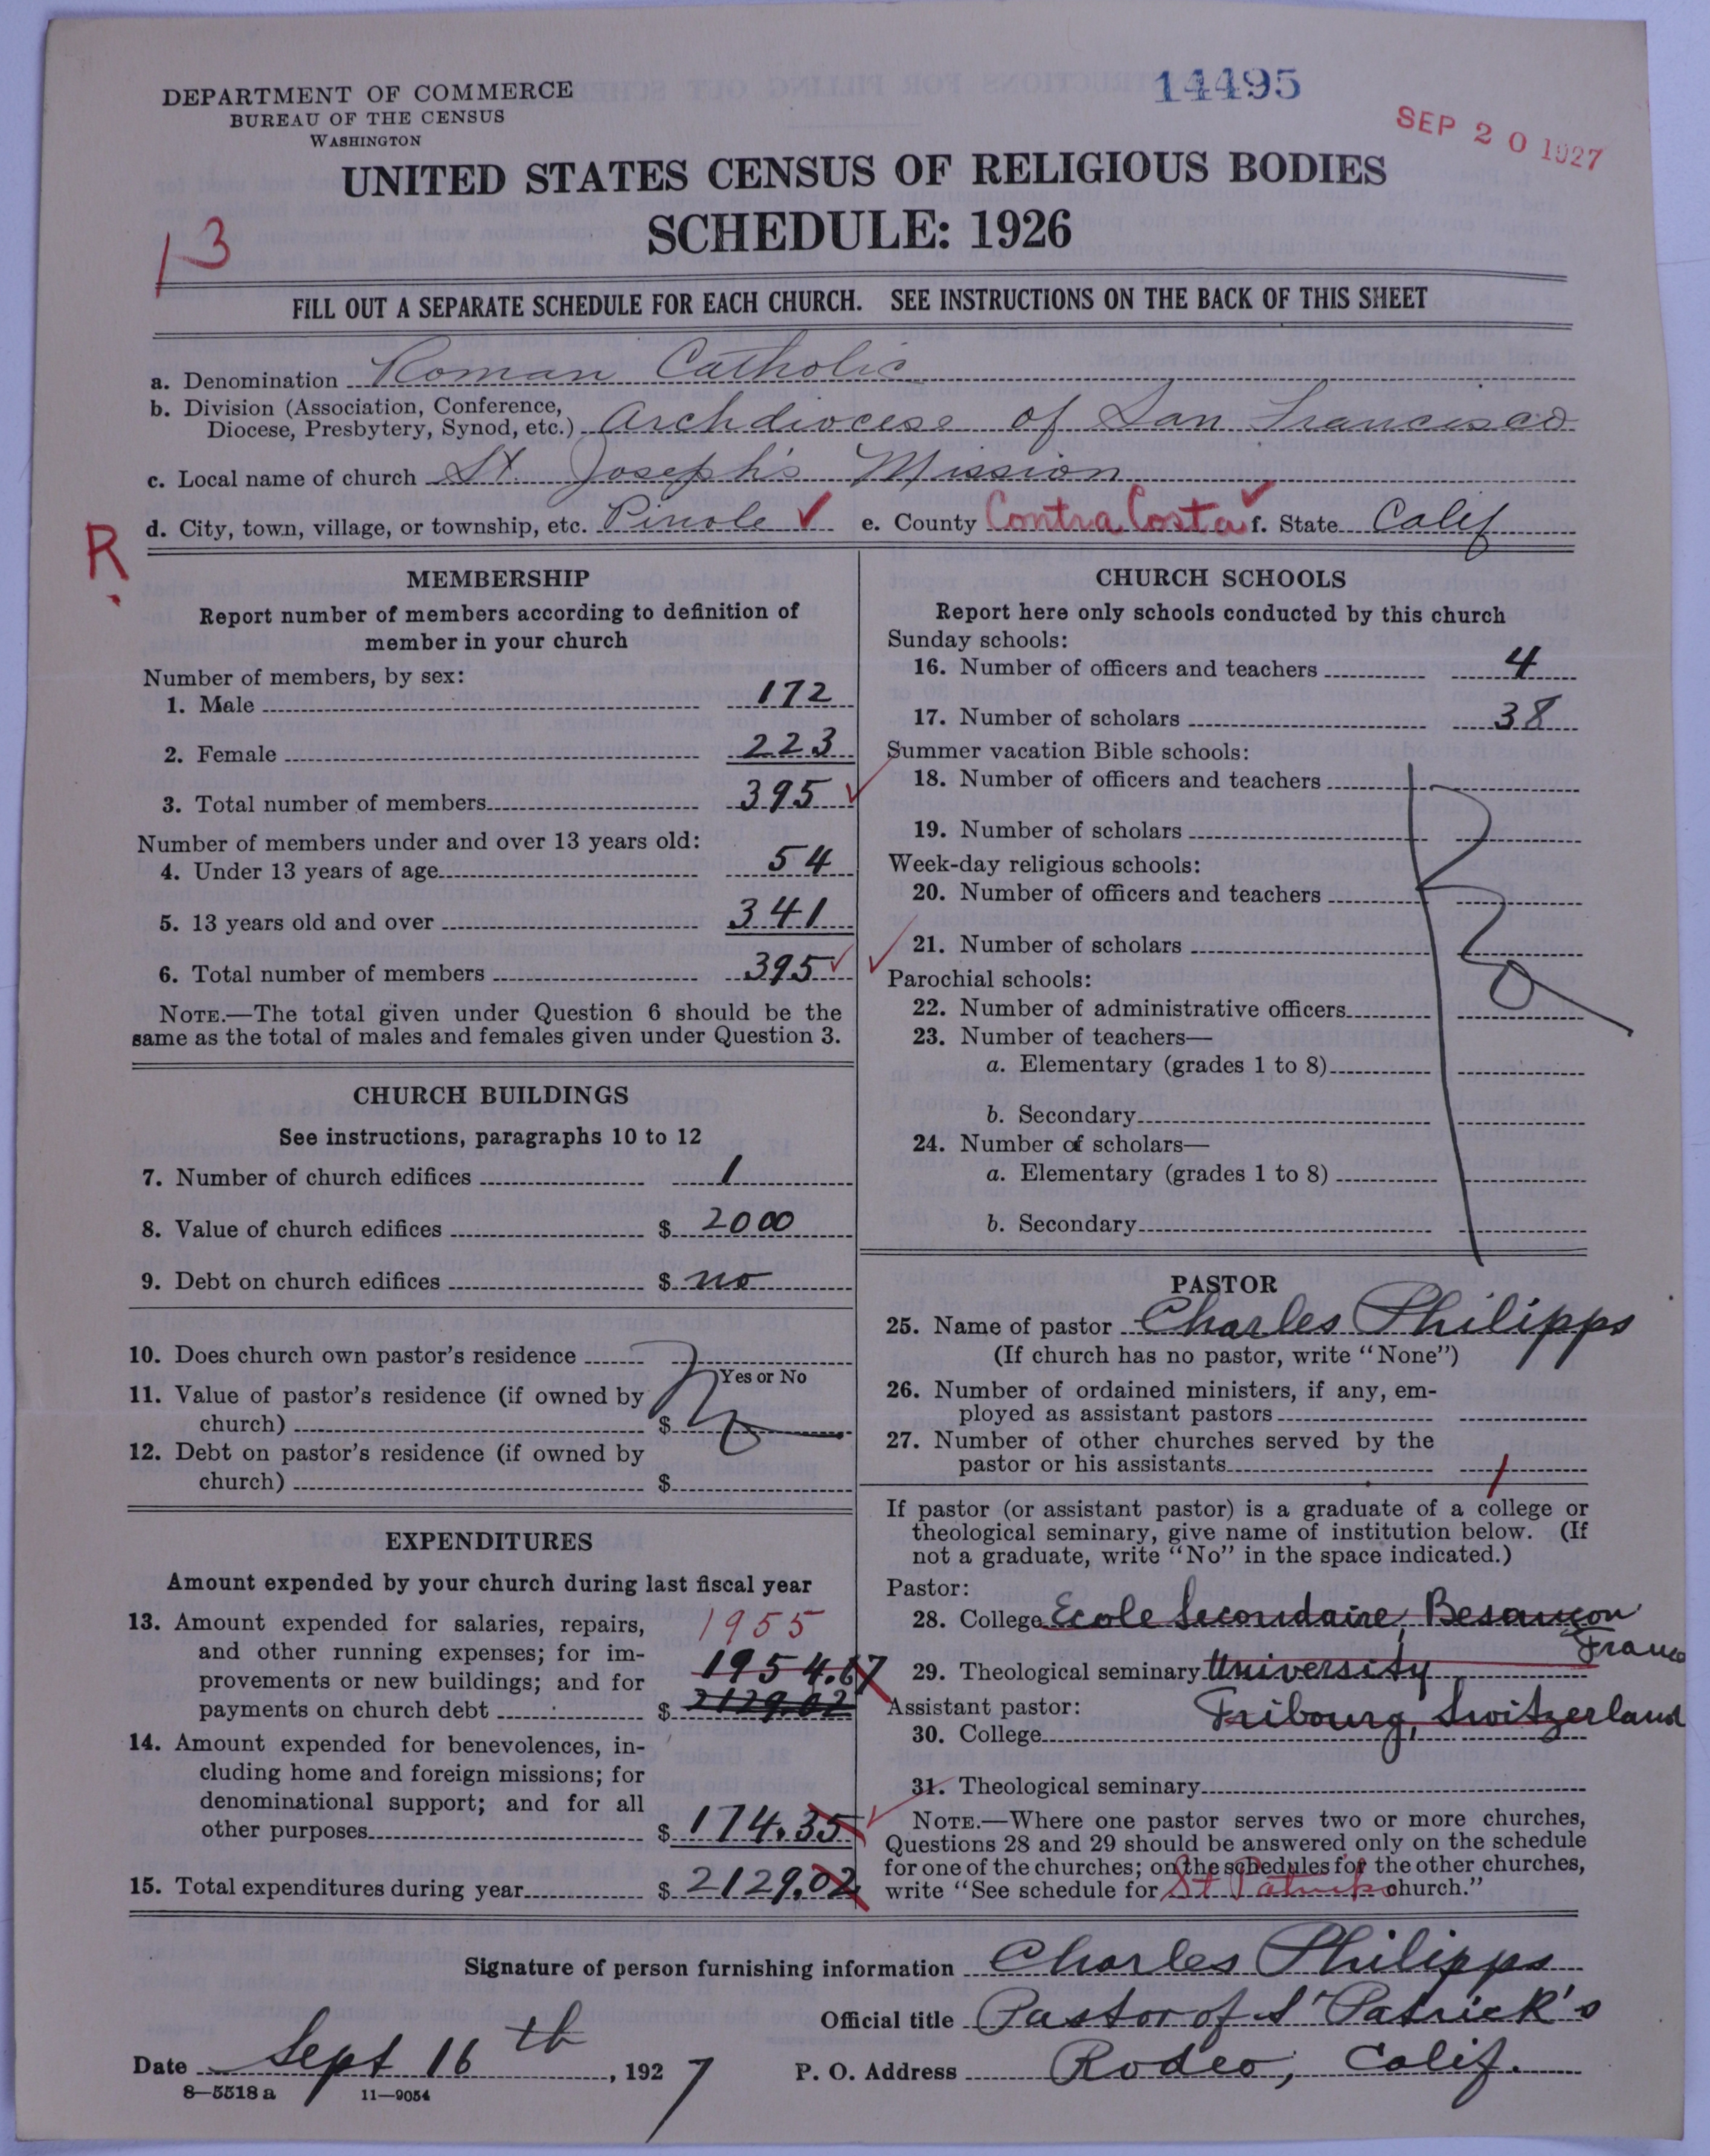 14495
SEP 20 1927
DEPARTMENT OF COMMERCE
BUREAU OF THE CENSUS
WASHINGTON
UNITED STATES CENSUS OF RELIGIOUS BODIES
SCHEDULE: 1926
13
FILL OUT A SEPARATE SCHEDULE FOR EACH CHURCH. SEE INSTRUCTIONS ON THE BACK OF THIS SHEET
a. Denomination Roman Catholic
b. Division (Association, Conference,
Diocese, Presbytery, Synod, etc.) Archdiocese of San Francisco
c. Local name of church St. Joseph's Mission
d. City, town, village, or township, etc. Pinole ✓ e. County Contra Costa ✓ f. State Calif
R.
MEMBERSHIP
Report number of members according to definition of
member in your church
Number of members, by sex:
1. Male 172
2. Female 223
3. Total number of members 395 ✓
Number of members under and over 13 years old:
4. Under 13 years of age 54
5. 13 years old and over 341
6. Total number of members 395 ✓
NOTE.—The total given under Question 6 should be the
same as the total of males and females given under Question 3.
CHURCH BUILDINGS
See instructions, paragraphs 10 to 12
7. Number of church edifices 1
8. Value of church edifices $ 2000
9. Debt on church edifices $ no
10. Does church own pastor's residence
Yes or No
11. Value of pastor's residence (if owned by
church) $ No
12. Debt on pastor's residence (if owned by
church) $
EXPENDITURES
Amount expended by your church during last fiscal year
13. Amount expended for salaries, repairs, 1955
and other running expenses; for im-
provements or new buildings; and for 1954.67
payments on church debt $ 2129.02
14. Amount expended for benevolences, in-
cluding home and foreign missions; for
denominational support; and for all
other purposes $ 174.35
15. Total expenditures during year $ 2129.02
CHURCH SCHOOLS
Report here only schools conducted by this church
Sunday schools:
16. Number of officers and teachers 4
17. Number of scholars 38
Summer vacation Bible schools:
18. Number of officers and teachers
19. Number of scholars
Week-day religious schools:
20. Number of officers and teachers
No
21. Number of scholars
Parochial schools:
22. Number of administrative officers
23. Number of teachers—
a. Elementary (grades 1 to 8)
b. Secondary
24. Number of scholars—
a. Elementary (grades 1 to 8)
b. Secondary
PASTOR
25. Name of pastor Charles Philipps
(If church has no pastor, write "None")
26. Number of ordained ministers, if any, em-
ployed as assistant pastors
27. Number of other churches served by the
pastor or his assistants 1
If pastor (or assistant pastor) is a graduate of a college or
theological seminary, give name of institution below. (If
not a graduate, write "No" in the space indicated.)
Pastor:
28. College Ecole Secondaire, Besançon
France
29. Theological seminary University
Assistant pastor: Fribourg, Switzerland
30. College
31. Theological seminary
NOTE.—Where one pastor serves two or more churches,
Questions 28 and 29 should be answered only on the schedule
for one of the churches; on the schedules for the other churches,
write "See schedule for St Patricks church."
Signature of person furnishing information Charles Philipps
Official title Pastor of St Patrick's
Date Sept 16th, 1927 P. O. Address Rodeo, Calif.
8—5518 a 11—9054